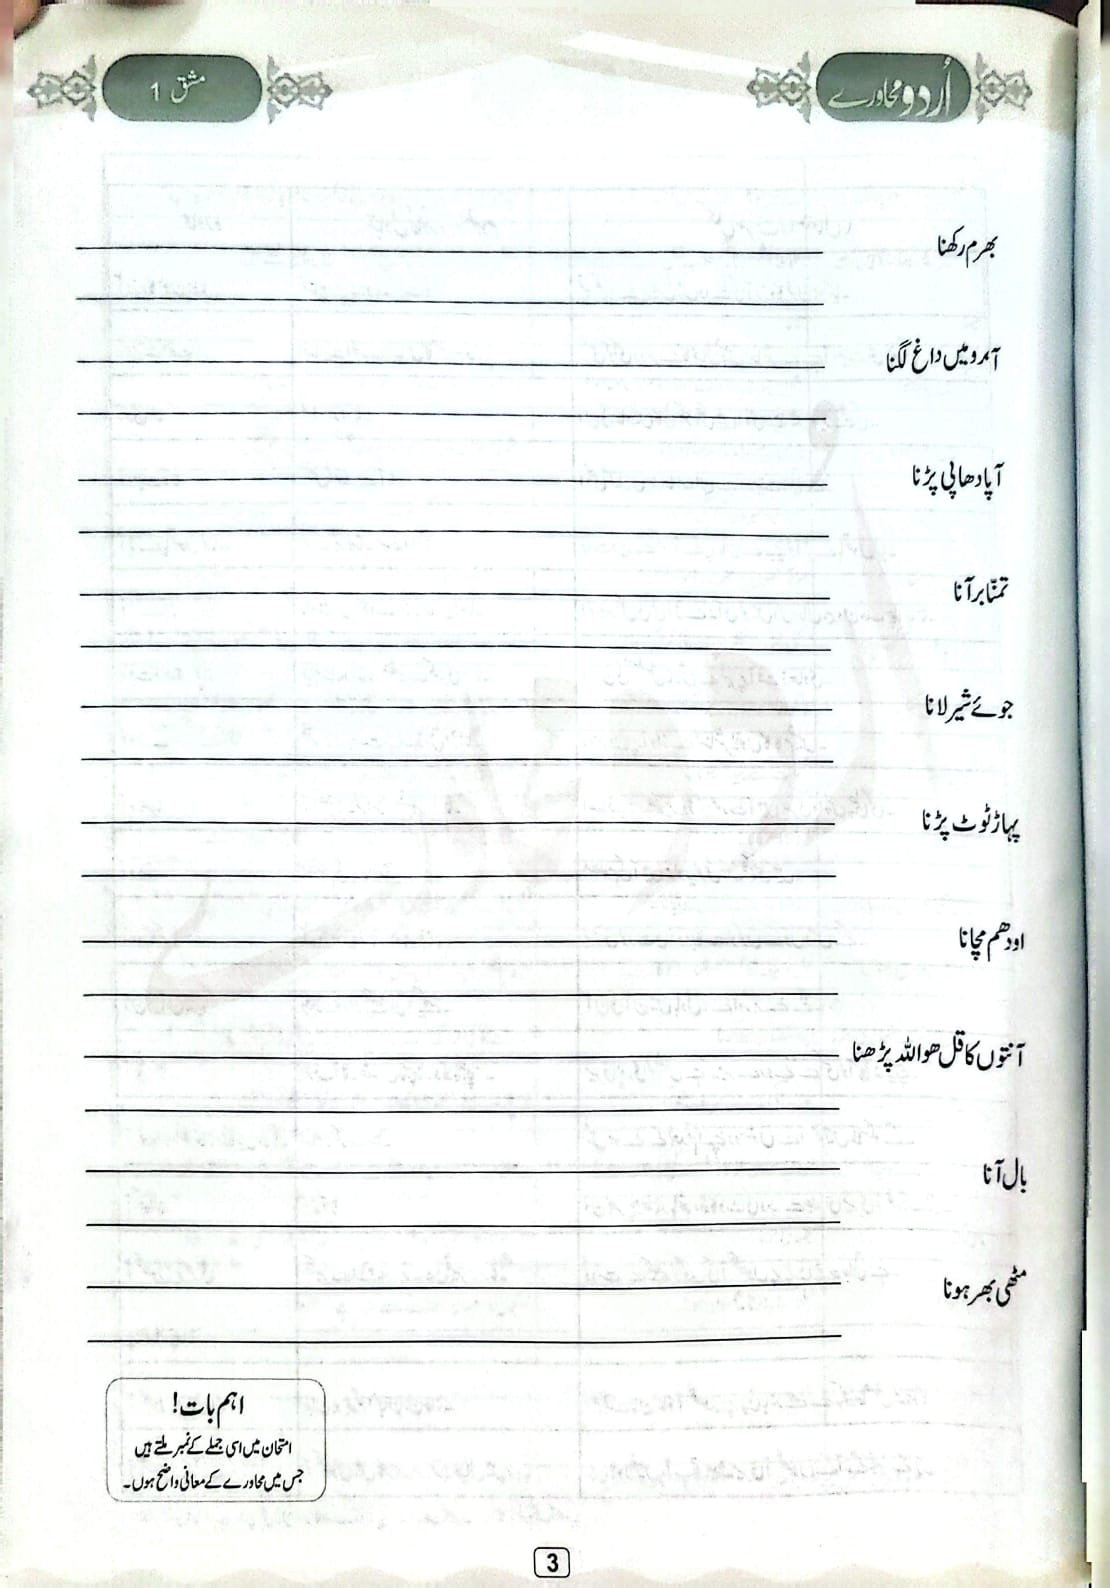 اُردو محاورے
مشق 1
بھرم رکھنا
آبرو میں داغ لگنا
آپا دھاپی پڑنا
تمنّا بر آنا
جوئے شیر لانا
پہاڑ ٹوٹ پڑنا
اودھم مچانا
آنتوں کا قل ھو اللہ پڑھنا
بال آنا
مٹھی بھر ہونا
اہم بات!
امتحان میں اسی جملے کے نمبر ملتے ہیں
جس میں محاورے کے معانی واضح ہوں۔
3